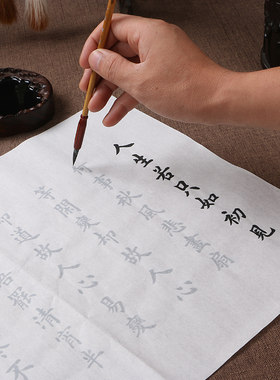 人生若只如初見
事秋風悲畫扇
等閒變却故人心
道故人心易變
語罷清宵半
不